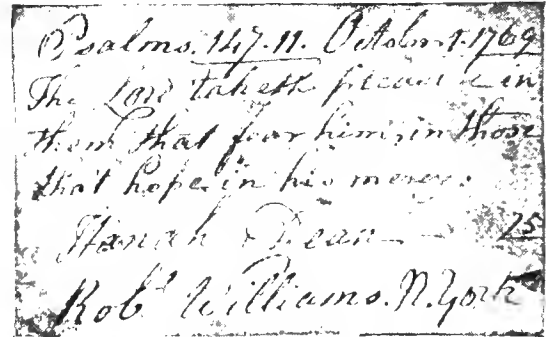 Psalms. 147.11. October 1. 1769
The Lord taketh pleasure in
them that fear him, in those
that hope in his mercy.
Hanah Dean 25
Robt Williams. N. York